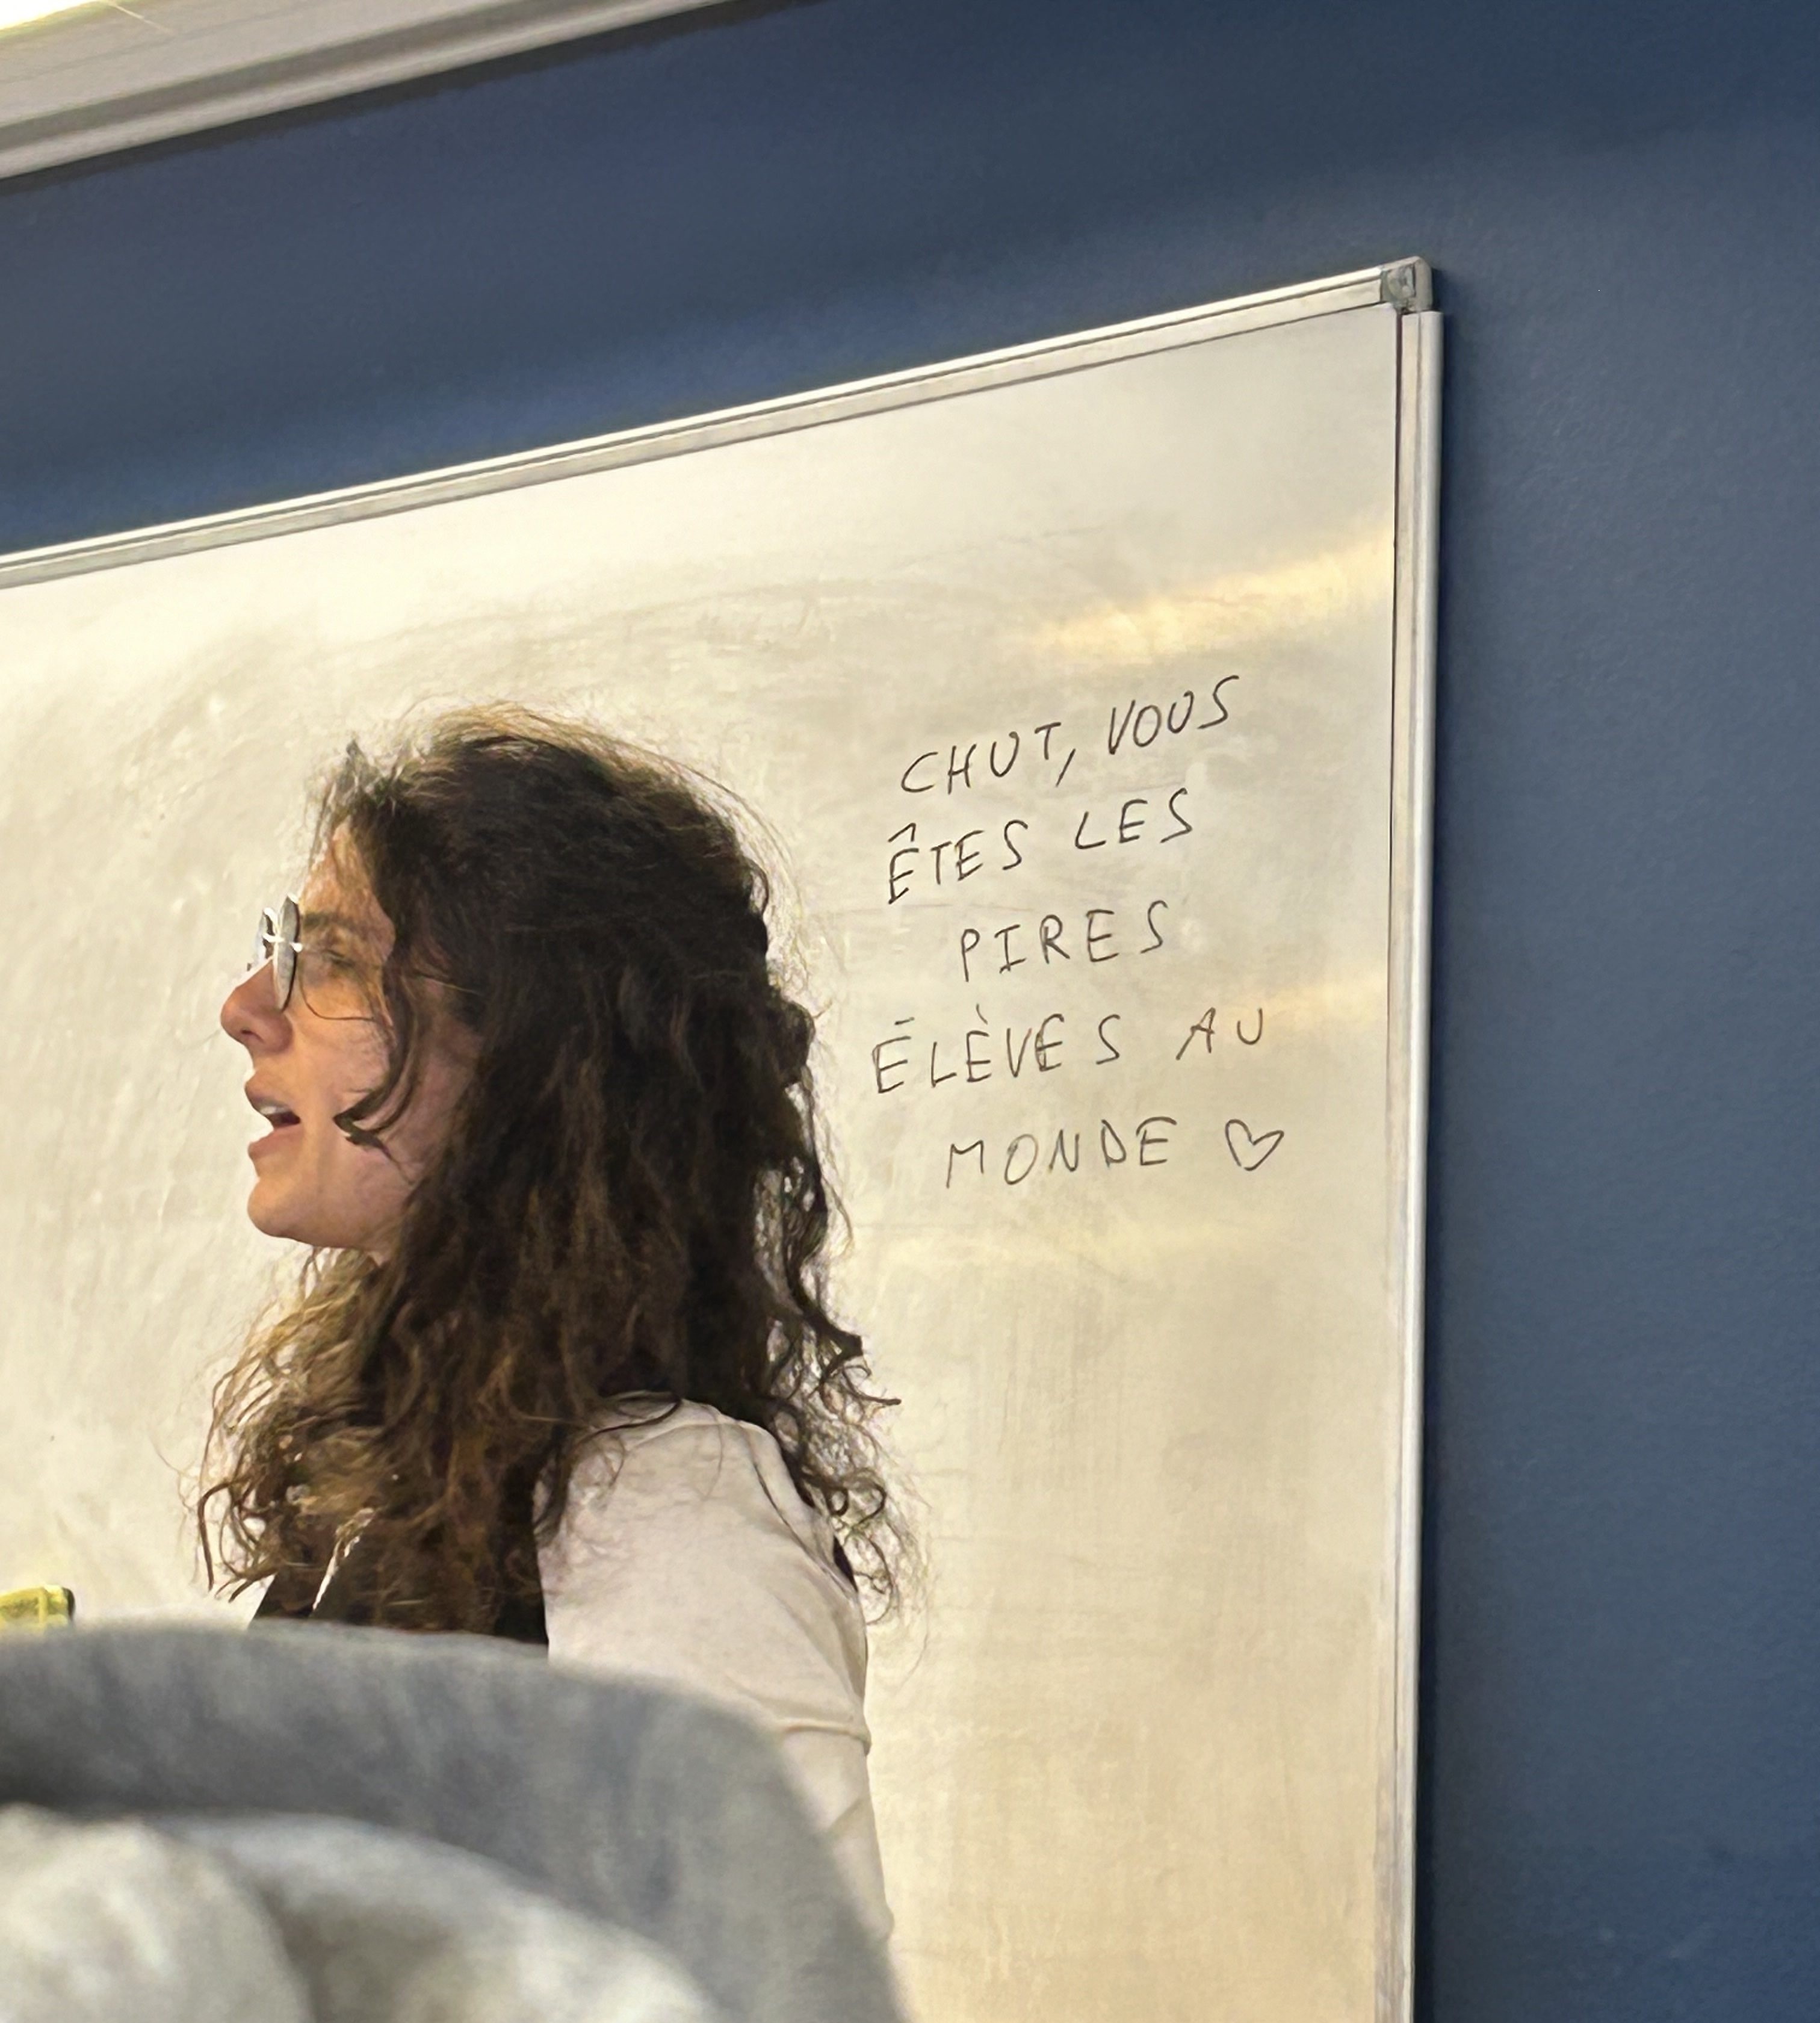 CHUT, VOUS
ÊTES LES
PIRES
ÉLÈVES AU
MONDE ♡